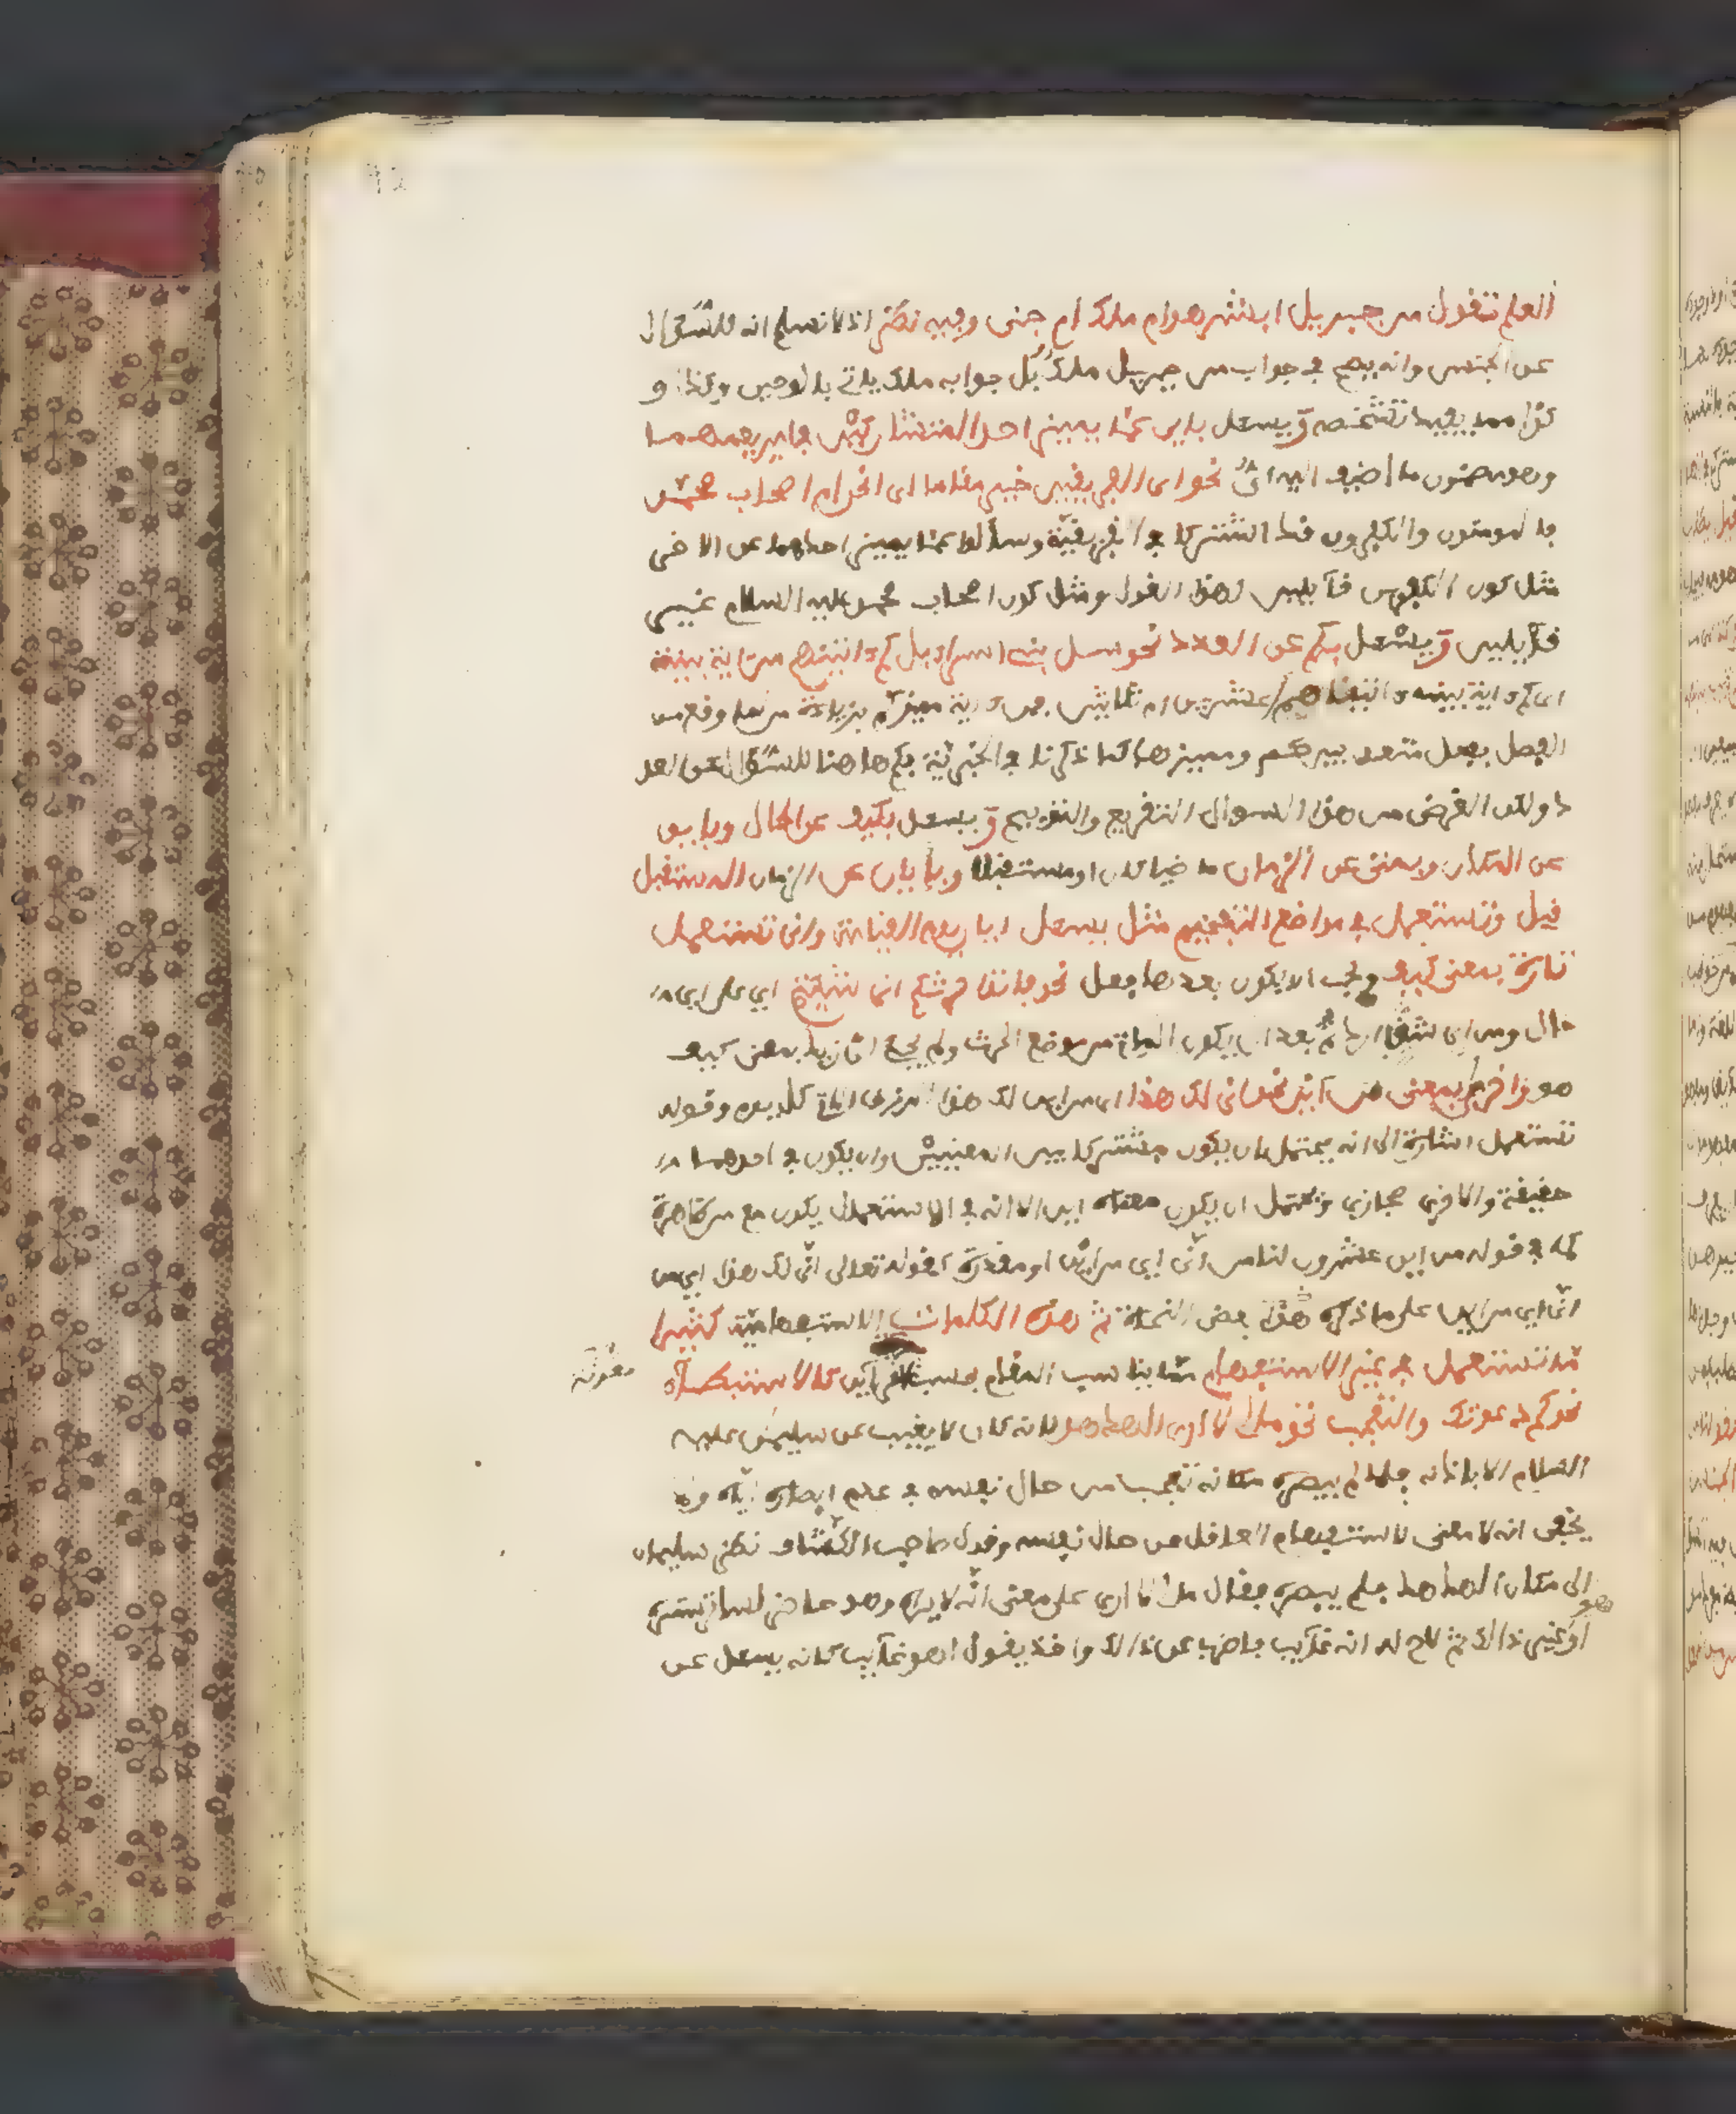 العلم تقول من جبريل ابشر هو ام ملك ام جنى وفيه نظر اذ لا نسلم انه للسؤال
عن الجنس وانه يصح في جواب من جبريل ملك بل جوابه ملك ياتي بالوحي وكذا و
كذا مما يفيد تشخصه ويسئل باي عما يميز احد المتشاركين في امر يعمهما
وهو مضمون ما اضيف اليه اي نحو اي الفريقين خير مقاما اي انحن ام اصحاب محمد
فالمومنون والكافرون قد اشتركا في الفريقية وسالوا عما يميز احدهما عن الاخر
مثل كون الكافرين قائلين لهذا القول ومثل كون اصحاب محمد عليه السلام غير
قائلين ويسئل بكم عن العدد نحو سل بني اسرايل كم اتيناهم من اية بينة
اي كم اية بينة اتيناهم اعشرين ام ثلاثين فمن اية مميز كم بزيادة من لما وقع من
الفصل بفعل متعد بين كم ومميزها كما ذكرنا في الخبرية فكم هاهنا للسؤال عن العد
د ولكن الغرض من هذا السوال التقريع والتوبيخ ويسئل بكيف عن الحال وباين
عن المكان وبمتى عن الزمان ماضيا كان او مستقبلا وبايان عن الزمان المستقبل
قيل وتستعمل في مواضع التفخيم مثل يسئل ايان يوم القيامة وانى تستعمل
تارة بمعنى كيف ويجب ان يكون بعدها فعل نحو فاتوا حرثكم انى شئتم اي على اي
حال ومن اي شق اردتم بعد ان يكون الماتى موضع الحرث ولم يجئ انى زيد بمعنى كيف
هو واخرى بمعنى من اين نحو انى لك هذا اي من اين لك هذا الرزق الاتي كل يوم وقوله
تستعمل اشارة الى انه يحتمل ان يكون مشتركا بين المعنيين وان يكون في احدهما
حقيقة والاخرى مجازي ويحتمل ان يكون معناه اين الا انه في الاستعمال يكون مع من ظاهرة
كما في قوله من اين عشرون لنا من انى اي من اين او مقدرة كقوله تعالى انى لك هذا اي من
انى اي من اين على ما ذكره هذا بعض النحاة ثم هذه الكلمات الاستفهامية كثيرا
ما تستعمل في غير الاستفهام مما يناسب المقام بحسب القراين كالاستبطاء
معونة
نحو كم دعوتك والتعجب نحو مالي لا ارى الهدهد لانه كان لا يغيب عن سليمان عليه
السلام الا باذنه فلما لم يبصره مكانه تعجب من حال نفسه في عدم ابصاره اياه ولا
يخفى انه لا معنى لاستفهام العاقل عن حال نفسه وقول صاحب الكشاف نظر سليمان
الى مكان الهدهد فلم يبصره فقال مالي لا ارى على معنى انه لا يراه وهو حاضر لساتر ستره
هو
او غير ذالك ثم لاح له انه غايب فاضرب عن ذالك واخذ يقول اهو غايب كانه يسئل عن